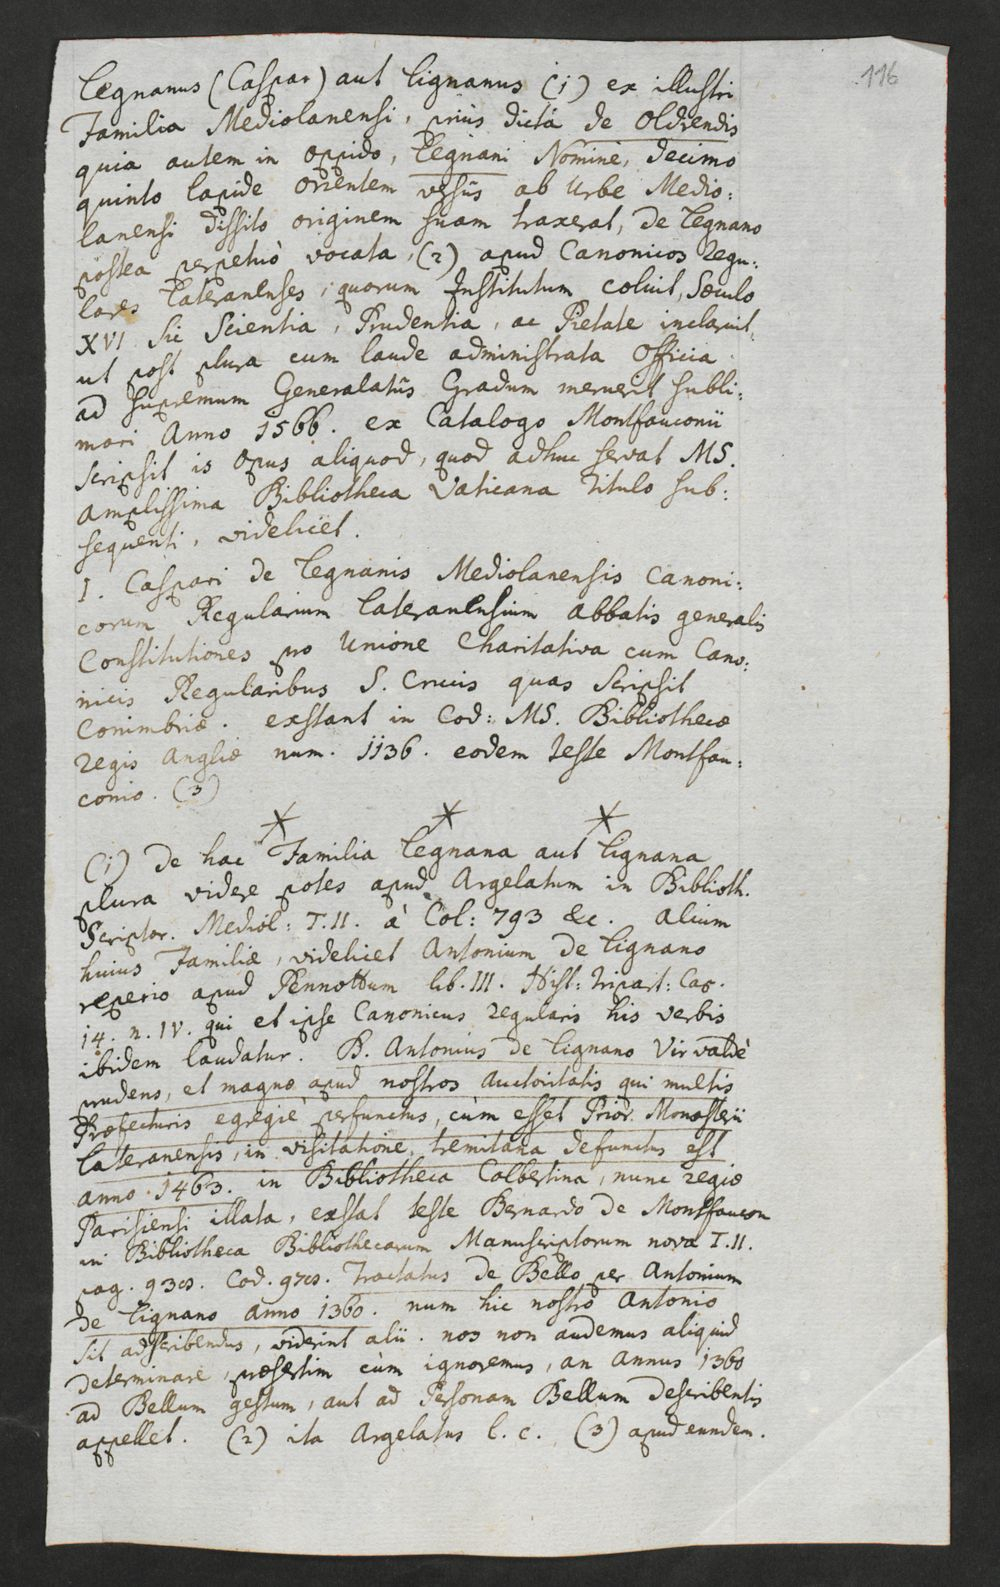 116
Legnanus (Caspar) aut Lignanus (1) ex illustri
Familia Mediolanensi, prius dicta de Oldrendis
quia autem in oppido, Legnani Nomine, decimo
quinto lapide orientem versùs ab Urbe Medio:
lanensi dissito originem suam traxerat, de Legnano
postea perpetuò vocata, (2) apud Canonicos Regu:
lares Lateranenses, quorum Institutum coluit, Sæculo
XVI sic Scientia, Prudentia, ac Pietate inclaruit,
ut post plura cum laude administrata officia
ad supremum Generalatûs Gradum meruerit subli:
mari Anno 1566. ex Catalogo Montfauconii
scripsit is opus aliquod, quod adhuc servat MS.
amplissima Bibliotheca Vaticana Titulo sub:
sequenti, videlicet.
I. Caspari de Legnanis Mediolanensis Canoni:
corum Regularium Lateranensium abbatis generalis
Constitutiones pro Unione Charitativa cum Cano:
nicis Regularibus S. Crucis quas scripsit
Conimbriæ. exstant in Cod: MS. Bibliothecæ
regis Angliæ num. 1136. eodem teste Montfau:
conio. (3)
* * *
(1) De hac Familia Legnana aut Lignana
plura videre potes apud Argelatum in Biblioth.
Scriptor. Mediol: T.II. à Col: 793 &c. alium
huius Familiæ, videlicet Antonium de Lignano
reperio apud Pennottum lib. III. Hist: tripart: Cap.
14. n. IV. qui et ipse Canonicus regularis his verbis
ibidem laudatur. B. Antonius de Lignano Vir valdè
prudens, et magnæ apud nostros Auctoritatis qui multis
Præfecturis egregiè perfunctus, cùm esset Prior Monasterii
Lateranensis, in visitatione tremitana defunctus est
anno 1463. in Bibliotheca Colbertina, nunc regiæ
Parisiensi illata, exstat teste Bernardo de Montfaucon
in Bibliotheca Bibliothecarum Manuscriptorum nova T.II.
pag. Cod. Tractatus de Bello per Antonium
de Lignano anno 1360. num hic nostro Antonio
sit adscribendus, viderint alii. nos non audemus aliquid
determinare, præsertim cùm ignoremus, an annus 1360
ad Bellum gestum, aut ad Personam Bellum describentis
appellet. (2) ita Argelatus l. c. (3) apud eundem.